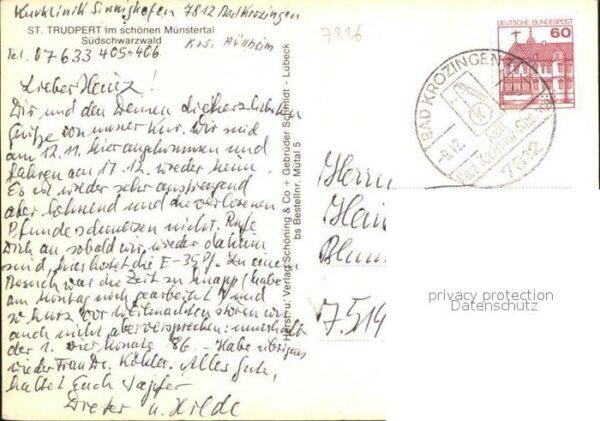 Kurklinik Sinnighofen 7812 Bad Krozingen
ST. TRUDPERT im schönen Münstertal
Südschwarzwald
Tel. 07633 405+406
7816
Lieber Heinz!
Dir und den Deinen die herzlichsten
Grüße von unser Kur. Wir sind
am 12.11. hier angekommen und
fahren am 17.12. wieder heim.
Es ist wieder sehr anstrengend
aber lohnend und die verlorenen
Pfunde schmerzen nicht. Rufe
Dich an sobald wir wieder daheim
sind, hier kostet die E - 35 Pf. Zu einem
Besuch war die Zeit zu knapp (habe
am Montag noch gearbeitet) und
so kurz vor Weihnachten stören wir
auch nicht aber versprechen: innerhalb
der 1. vier Monate 86. - Habe übrigens
wieder Frau Dr. Köhler. Alles Gute,
haltet Euch tapfer
Dieter u. Hilde
Herst. u. Verlag Schöning & Co + Gebrüder Schmidt - Lübeck
bs Bestellnr. Mütal 5
DEUTSCHE BUNDESPOST
60
BAD KROZINGEN
-9.12.
7812
Herrn
Hein
Blum
7519
privacy protection
Datenschutz